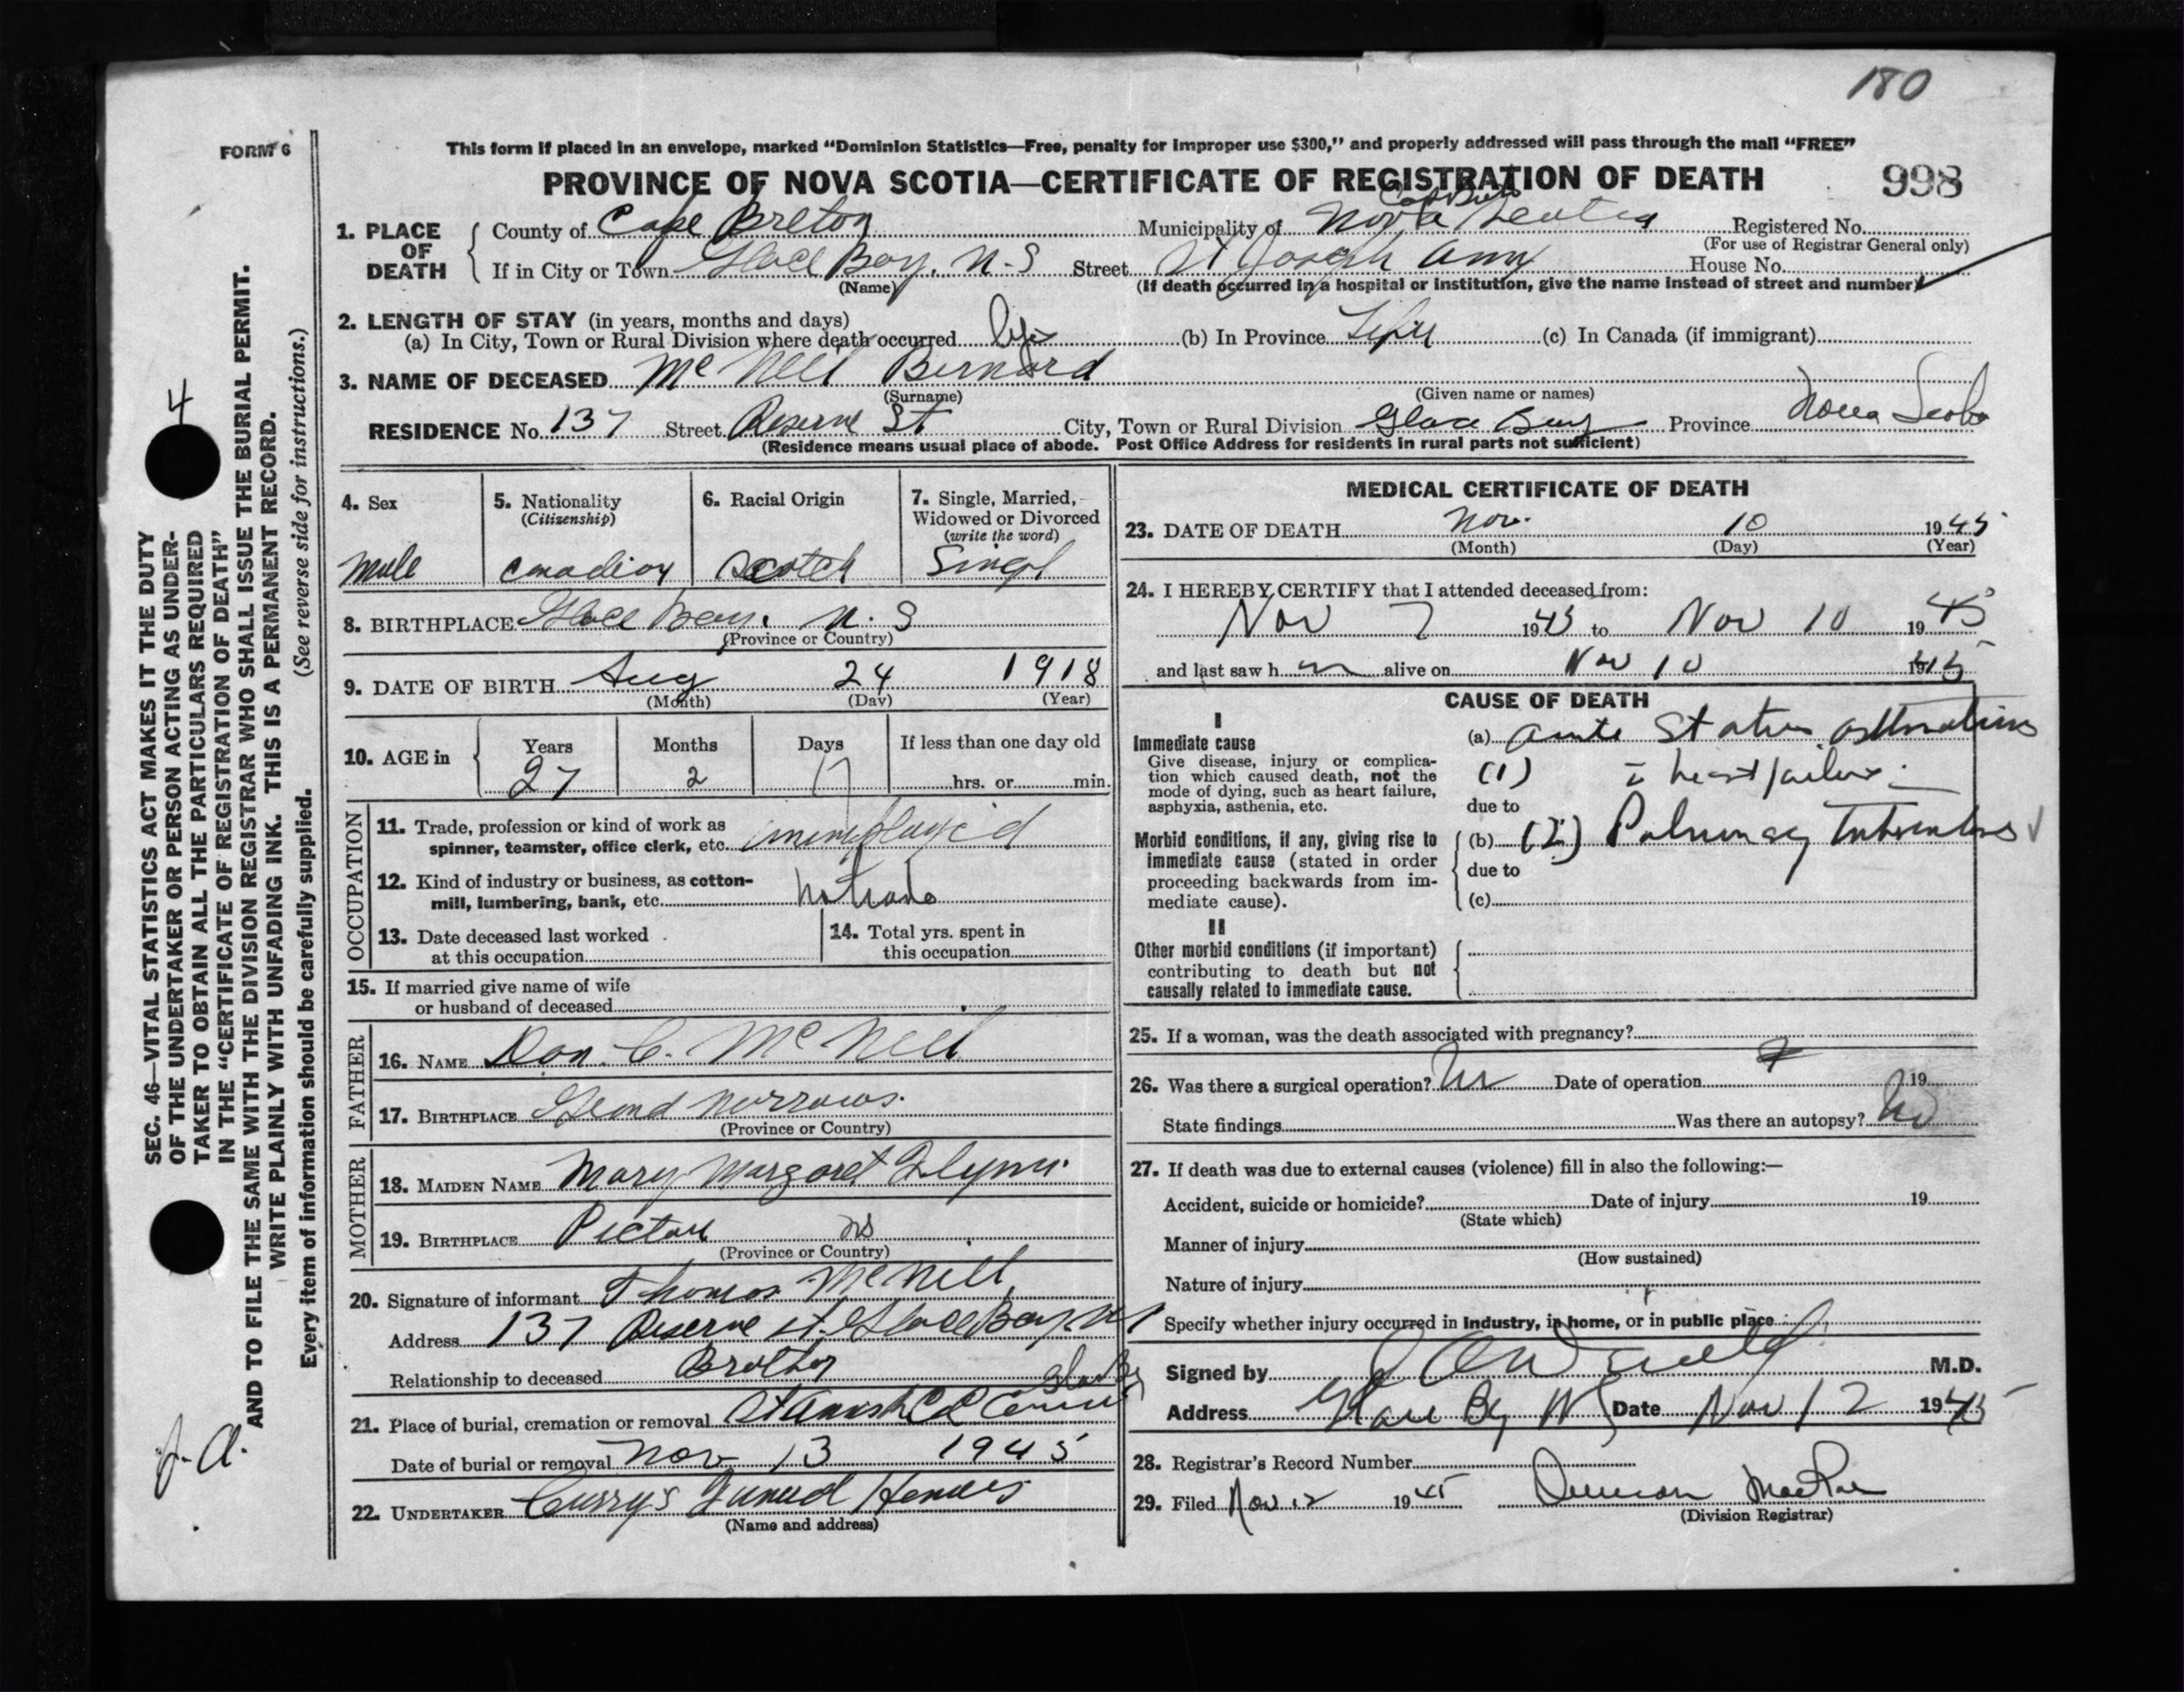 180
FORM 6
This form if placed in an envelope, marked “Dominion Statistics—Free, penalty for improper use $300,” and properly addressed will pass through the mail “FREE”
PROVINCE OF NOVA SCOTIA—CERTIFICATE OF REGISTRATION OF DEATH 998
1. PLACE OF DEATH
County of Cape Breton Municipality of Nova Scotia Registered No.
(For use of Registrar General only)
If in City or Town Glace Bay. N-S Street St Joseph House No.
(Name) (If death occurred in a hospital or institution, give the name instead of street and number)
2. LENGTH OF STAY (in years, months and days)
(a) In City, Town or Rural Division where death occurred life (b) In Province Life (c) In Canada (if immigrant)
3. NAME OF DECEASED McNeil Bernard
(Surname) (Given name or names)
RESIDENCE No. 137 Street Reserve St City, Town or Rural Division Glace Bay Province Nova Scotia
(Residence means usual place of abode. Post Office Address for residents in rural parts not sufficient)
4. Sex
male
5. Nationality
(Citizenship)
Canadian
6. Racial Origin
Scotch
7. Single, Married,
Widowed or Divorced
(write the word)
Singl
8. BIRTHPLACE Glace Bay. N. S
(Province or Country)
9. DATE OF BIRTH Aug 24 1918
(Month) (Day) (Year)
10. AGE in
Years Months Days If less than one day old
27 2 17 hrs. or min.
OCCUPATION
11. Trade, profession or kind of work as
spinner, teamster, office clerk, etc. unemployed
12. Kind of industry or business, as cotton-
mill, lumbering, bank, etc. no trade
13. Date deceased last worked
at this occupation
14. Total yrs. spent in
this occupation
15. If married give name of wife
or husband of deceased
FATHER
16. NAME Dan. C. McNeil
17. BIRTHPLACE Grand Narrows.
(Province or Country)
MOTHER
18. MAIDEN NAME Mary Margaret Flynn
19. BIRTHPLACE Pictou NS
(Province or Country)
20. Signature of informant Thomas McNeil
Address 137 Reserve st. Glace Bay. NS
Relationship to deceased Brother
Glace Bay
21. Place of burial, cremation or removal
Date of burial or removal Nov 13 1945
22. UNDERTAKER Curry's Funeral Homes
(Name and address)
MEDICAL CERTIFICATE OF DEATH
23. DATE OF DEATH Nov. 10 1945
(Month) (Day) (Year)
24. I HEREBY CERTIFY that I attended deceased from:
Nov 7 1945 to Nov 10 1945
and last saw h m alive on Nov 10 1945
CAUSE OF DEATH
I
Immediate cause
Give disease, injury or complica-
tion which caused death, not the
mode of dying, such as heart failure,
asphyxia, asthenia, etc.
(a) acute Status asthmaticus
(1) c heart failure.
due to
Morbid conditions, if any, giving rise to
immediate cause (stated in order
proceeding backwards from im-
mediate cause).
(b) (2) Pulmonary Tuberculosis
due to
(c)
II
Other morbid conditions (if important)
contributing to death but not
causally related to immediate cause.
25. If a woman, was the death associated with pregnancy?
26. Was there a surgical operation? No Date of operation 19
State findings Was there an autopsy? No
27. If death was due to external causes (violence) fill in also the following:—
Accident, suicide or homicide? Date of injury 19
(State which)
Manner of injury
(How sustained)
Nature of injury
Specify whether injury occurred in industry, in home, or in public place
Signed by M.D.
Address Glace Bay NS Date Nov 12 1945
28. Registrar's Record Number
29. Filed Nov 12 1945 Duncan MacRae
(Division Registrar)
SEC. 46—VITAL STATISTICS ACT MAKES IT THE DUTY
OF THE UNDERTAKER OR PERSON ACTING AS UNDER-
TAKER TO OBTAIN ALL THE PARTICULARS REQUIRED
IN THE “CERTIFICATE OF REGISTRATION OF DEATH”
AND TO FILE THE SAME WITH THE DIVISION REGISTRAR WHO SHALL ISSUE THE BURIAL PERMIT.
WRITE PLAINLY WITH UNFADING INK. THIS IS A PERMANENT RECORD.
Every item of information should be carefully supplied. (See reverse side for instructions.)
4
J.A.